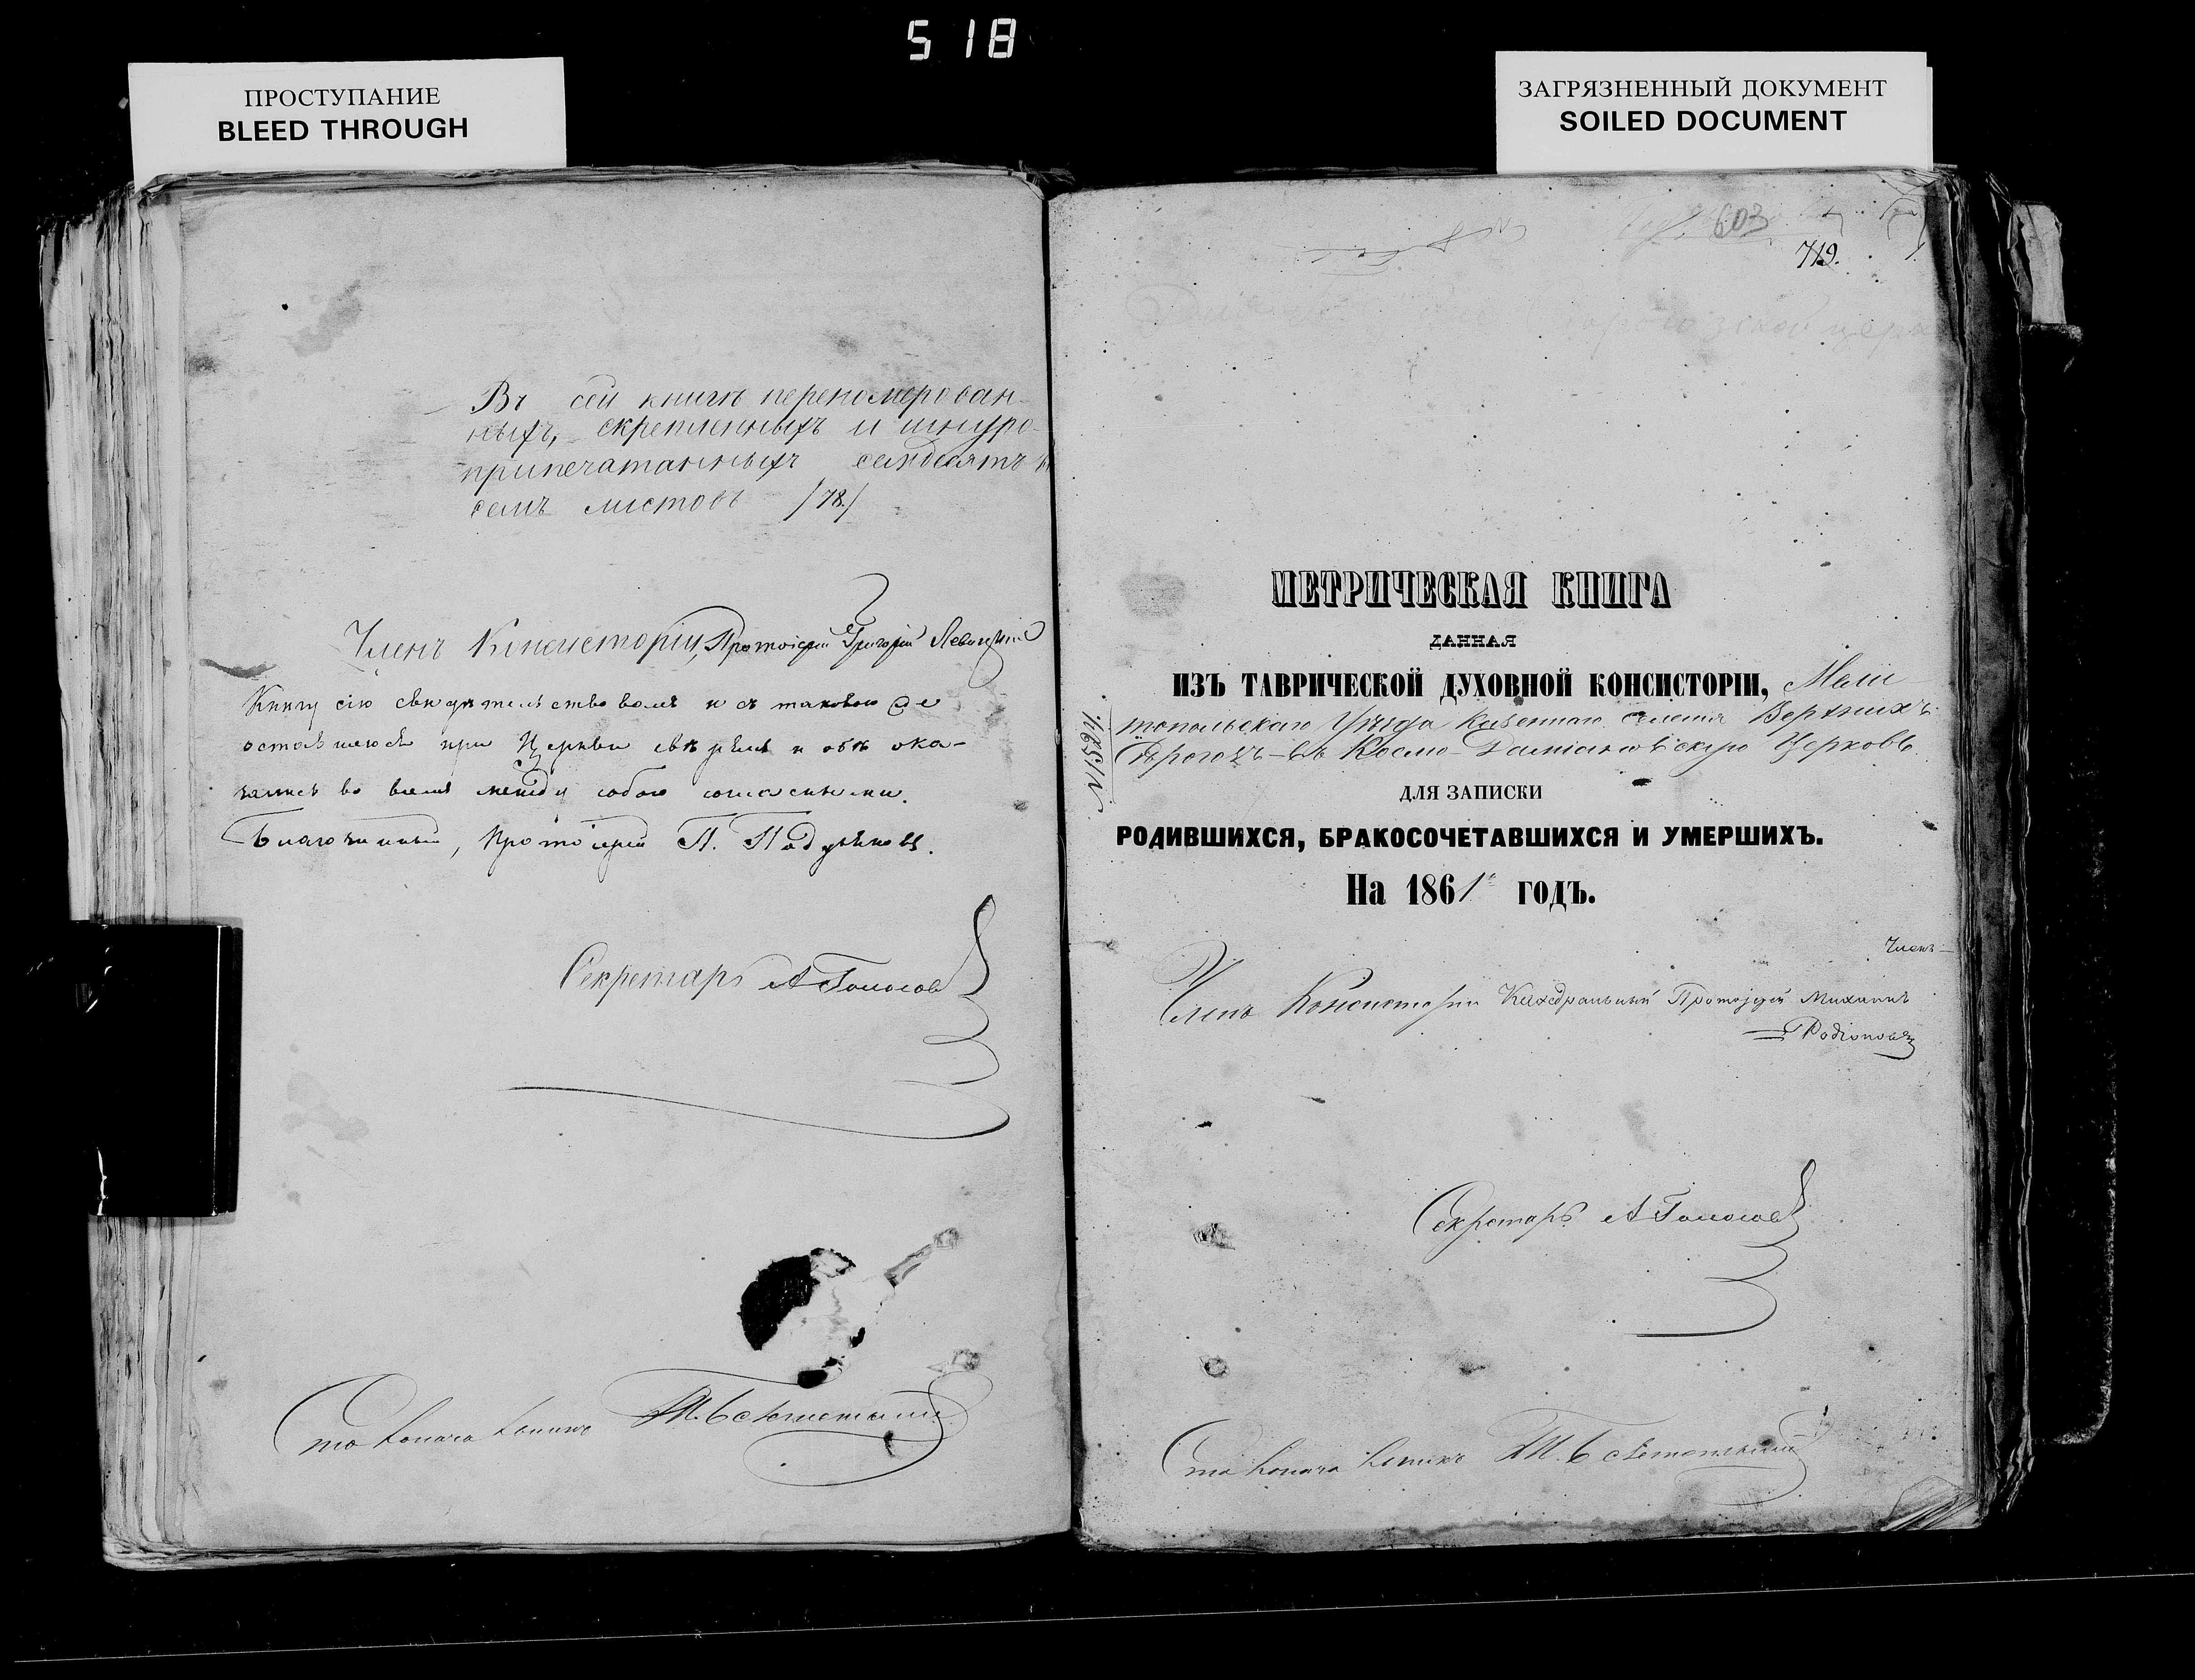 518
ПРОСТУПАНИЕ
BLEED THROUGH
ЗАГРЯЗНЕННЫЙ ДОКУМЕНТ
SOILED DOCUMENT
Въ сей книгѣ перенумерован-
ныхъ, скрепленныхъ и шнуро-
припечатанныхъ семдесятъ
семь листовъ /78/
Членъ Консисторіи, Протоіерей Григорій Левицкій
Книгу сію свидѣтельствовалъ и съ таковою же
оставшеюся при Церкви свѣрялъ и обѣ ока-
зались во всемъ между собою согласными.
Благочинный, Протоіерей П.
Секретарь А Гополов
Столоначальникъ
603
719.
МЕТРИЧЕСКАЯ КНИГА
ДАННАЯ
ИЗЪ ТАВРИЧЕСКОЙ ДУХОВНОЙ КОНСИСТОРІИ, Мели-
топольскаго Уѣзда казеннаго селенія Верхнихъ
Сѣрогозъ - въ Космо-Даміановскую Церковь
ДЛЯ ЗАПИСКИ
РОДИВШИХСЯ, БРАКОСОЧЕТАВШИХСЯ И УМЕРШИХЪ.
На 1861 ГОДЪ.
Членъ
Членъ Консисторіи Каѳедральный Протоіерей Михаилъ
Родіоновъ
Секретарь А
Столоначальникъ